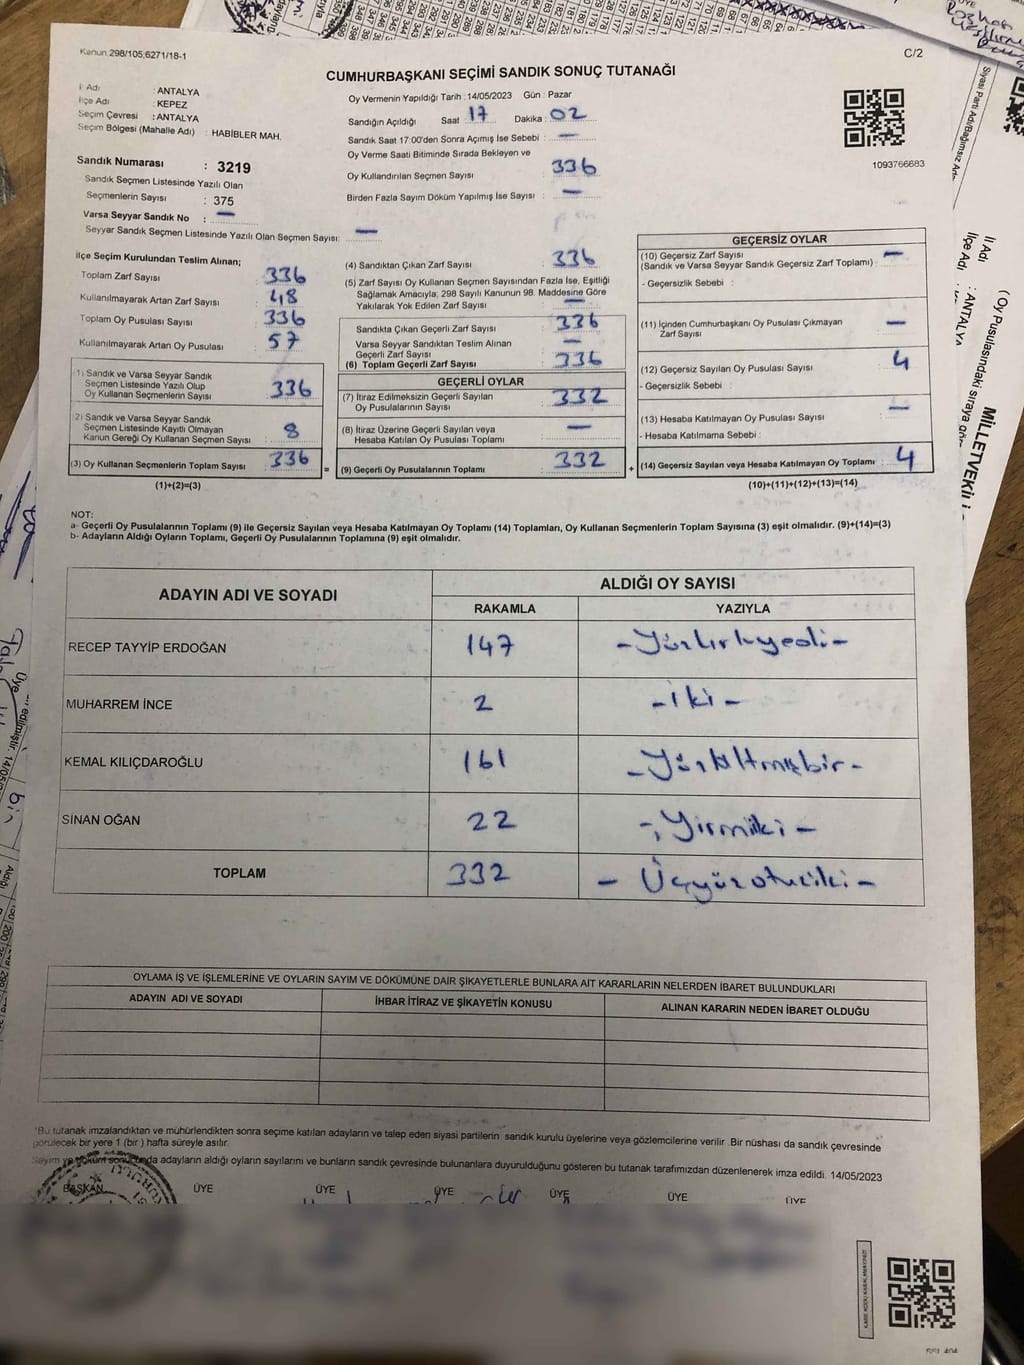 Kanun 298/105;6271/18-1
C/2
CUMHURBAŞKANI SEÇİMİ SANDIK SONUÇ TUTANAĞI
İl Adı : ANTALYA
İlçe Adı : KEPEZ
Seçim Çevresi : ANTALYA
Seçim Bölgesi (Mahalle Adı) : HABİBLER MAH.
Sandık Numarası : 3219
Sandık Seçmen Listesinde Yazılı Olan
Seçmenlerin Sayısı : 375
Varsa Seyyar Sandık No : —
Seyyar Sandık Seçmen Listesinde Yazılı Olan Seçmen Sayısı: —
Oy Vermenin Yapıldığı Tarih :14/05/2023 Gün : Pazar
Sandığın Açıldığı Saat : 17 Dakika : 02
Sandık Saat 17:00'den Sonra Açımış İse Sebebi : —
Oy Verme Saati Bitiminde Sırada Bekleyen ve
Oy Kullandırılan Seçmen Sayısı : 336
Birden Fazla Sayım Döküm Yapılmış İse Sayısı : —
1093766683
İlçe Seçim Kurulundan Teslim Alınan;
Toplam Zarf Sayısı 336
Kullanılmayarak Artan Zarf Sayısı 48
Toplam Oy Pusulası Sayısı 336
Kullanılmayarak Artan Oy Pusulası 57
1) Sandık ve Varsa Seyyar Sandık
Seçmen Listesinde Yazılı Olup
Oy Kullanan Seçmenlerin Sayısı 336
2) Sandık ve Varsa Seyyar Sandık
Seçmen Listesinde Kayıtlı Olmayan
Kanun Gereği Oy Kullanan Seçmen Sayısı 8
(3) Oy Kullanan Seçmenlerin Toplam Sayısı 336 =
(1)+(2)=(3)
(4) Sandıktan Çıkan Zarf Sayısı 336
(5) Zarf Sayısı Oy Kullanan Seçmen Sayısından Fazla İse, Eşitliği
Sağlamak Amacıyla; 298 Sayılı Kanunun 98. Maddesine Göre
Yakılarak Yok Edilen Zarf Sayısı —
Sandıkta Çıkan Geçerli Zarf Sayısı 336
Varsa Seyyar Sandıktan Teslim Alınan
Geçerli Zarf Sayısı —
(6) Toplam Geçerli Zarf Sayısı 336
GEÇERLİ OYLAR
(7) İtiraz Edilmeksizin Geçerli Sayılan
Oy Pusulalarının Sayısı 332
(8) İtiraz Üzerine Geçerli Sayılan veya
Hesaba Katılan Oy Pusulası Toplamı —
(9) Geçerli Oy Pusulalarının Toplamı 332 +
GEÇERSİZ OYLAR
(10) Geçersiz Zarf Sayısı
(Sandık ve Varsa Seyyar Sandık Geçersiz Zarf Toplamı) : —
- Geçersizlik Sebebi :
(11) İçinden Cumhurbaşkanı Oy Pusulası Çıkmayan
Zarf Sayısı —
(12) Geçersiz Sayılan Oy Pusulası Sayısı 4
- Geçersizlik Sebebi :
(13) Hesaba Katılmayan Oy Pusulası Sayısı —
- Hesaba Katılmama Sebebi :
(14) Geçersiz Sayılan veya Hesaba Katılmayan Oy Toplamı : 4
(10)+(11)+(12)+(13)=(14)
NOT:
a- Geçerli Oy Pusulalarının Toplamı (9) ile Geçersiz Sayılan veya Hesaba Katılmayan Oy Toplamı (14) Toplamları, Oy Kullanan Seçmenlerin Toplam Sayısına (3) eşit olmalıdır. (9)+(14)=(3)
b- Adayların Aldığı Oyların Toplamı, Geçerli Oy Pusulalarının Toplamına (9) eşit olmalıdır.
ADAYIN ADI VE SOYADI
ALDIĞI OY SAYISI
RAKAMLA YAZIYLA
RECEP TAYYİP ERDOĞAN 147 -Yüzkırkyedi-
MUHARREM İNCE 2 -İki-
KEMAL KILIÇDAROĞLU 161 -Yüzaltmışbir-
SİNAN OĞAN 22 -Yirmiiki-
TOPLAM 332 - Üçyüzotuziki-
OYLAMA İŞ VE İŞLEMLERİNE VE OYLARIN SAYIM VE DÖKÜMÜNE DAİR ŞİKAYETLERLE BUNLARA AİT KARARLARIN NELERDEN İBARET BULUNDUKLARI
ADAYIN ADI VE SOYADI İHBAR İTİRAZ VE ŞİKAYETİN KONUSU ALINAN KARARIN NEDEN İBARET OLDUĞU
*Bu tutanak imzalandıktan ve mühürlendikten sonra seçime katılan adayların ve talep eden siyasi partilerin sandık kurulu üyelerine veya gözlemcilerine verilir. Bir nüshası da sandık çevresinde
görülecek bir yere 1 (bir ) hafta süreyle asılır.
Sayım ve döküm sonucunda adayların aldığı oyların sayılarını ve bunların sandık çevresinde bulunanlara duyurulduğunu gösteren bu tutanak tarafımızdan düzenlenerek imza edildi. 14/05/2023
BAŞKAN ÜYE ÜYE ÜYE ÜYE ÜYE ÜYE
Siyasi Parti Adı/Bağımsız
İl Adı : ANTALYA
İlçe Adı :
(Oy Pusulasındaki sıraya göre
MİLLETVEKİLİ